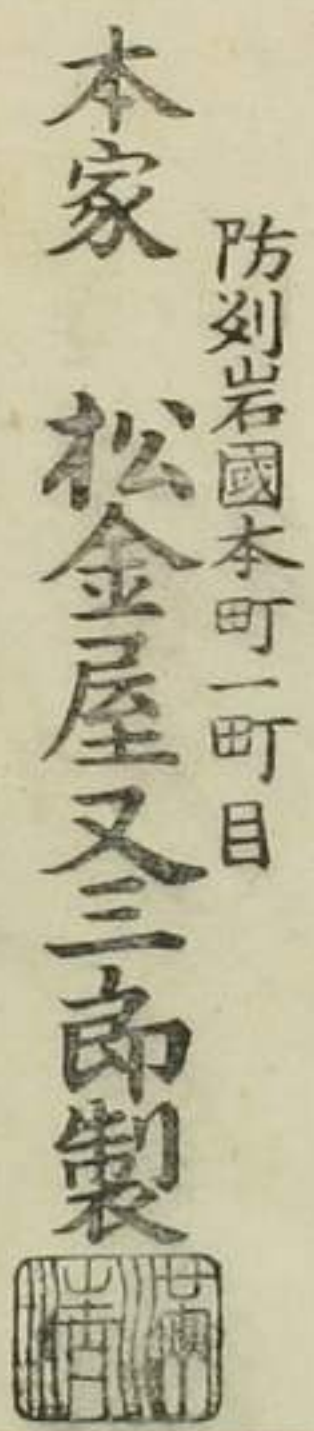 防刕岩國本町一町目
本家　松金屋又三郎製